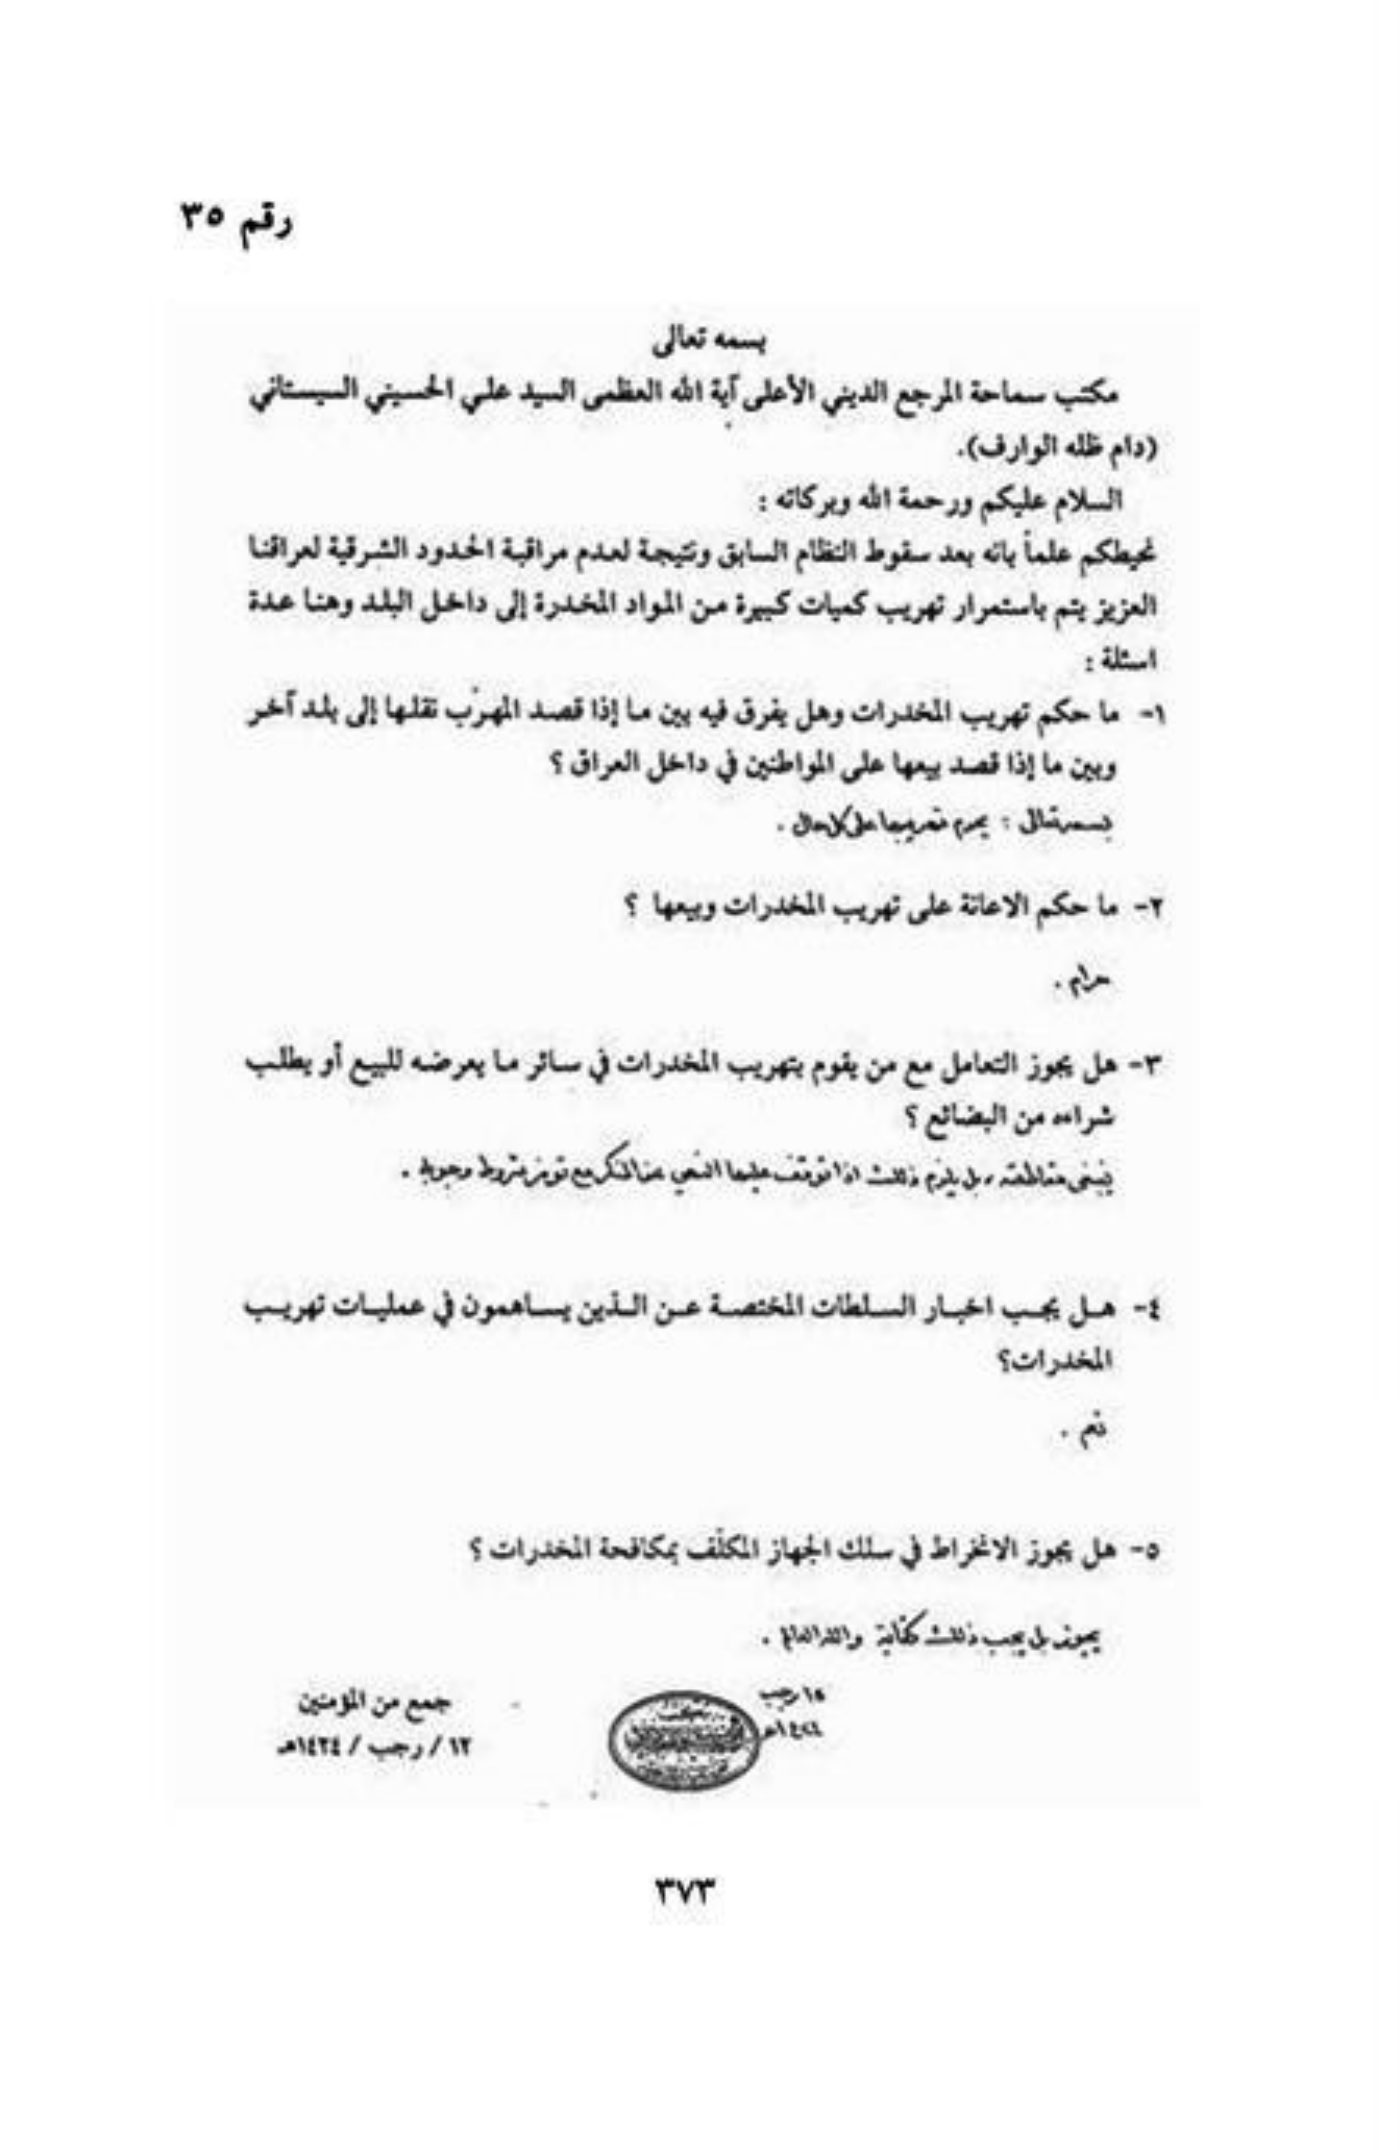 رقم ٣٥
بسمه تعالى
مكتب سماحة المرجع الديني الأعلى آية الله العظمى السيد علي الحسيني السيستاني
(دام ظله الوارف).
السلام عليكم ورحمة الله وبركاته :
نحيطكم علماً بانه بعد سقوط النظام السابق ونتيجة لعدم مراقبة الحدود الشرقية لعراقنا
العزيز يتم باستمرار تهريب كميات كبيرة من المواد المخدرة إلى داخل البلد وهنا عدة
اسئلة :
١- ما حكم تهريب المخدرات وهل يفرق فيه بين ما إذا قصد المهرّب نقلها إلى بلد آخر
وبين ما إذا قصد بيعها على المواطنين في داخل العراق ؟
بسمه تعالى : يحرم تهريبها على كل حال .
٢- ما حكم الاعانة على تهريب المخدرات وبيعها ؟
حرام .
٣- هل يجوز التعامل مع من يقوم بتهريب المخدرات في سائر ما يعرضه للبيع أو يطلب
شراءه من البضائع ؟
ينبغي مقاطعته ، بل يلزم ذلك اذا توقف عليها النهي عن المنكر مع توفر شروط وجوبه .
٤- هل يجب اخبار السلطات المختصة عن الذين يساهمون في عمليات تهريب
المخدرات؟
نعم .
٥- هل يجوز الانخراط في سلك الجهاز المكلّف بمكافحة المخدرات ؟
يجوز بل يجب ذلك كفاية والله العالم .
١٥ رجب
١٤٢٤هـ
جمع من المؤمنين
١٢ / رجب / ١٤٢٤هـ
٣٧٣